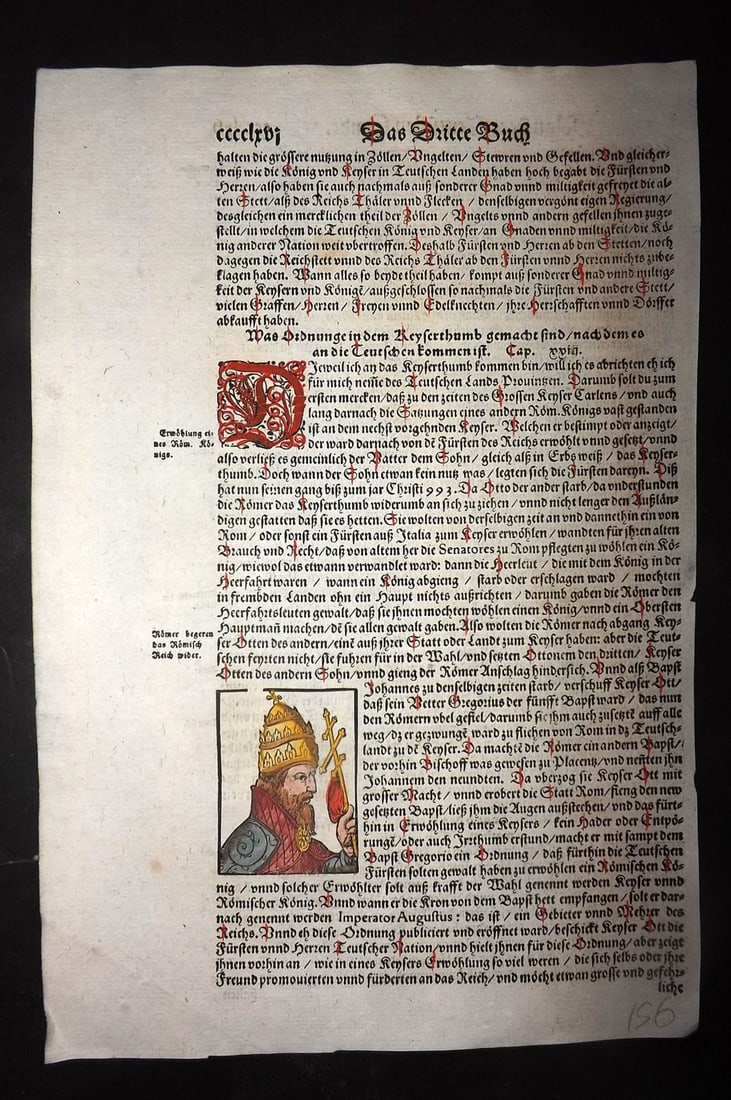 cccclxvj Das Dritte Buch
halten die grössere nutzung in Zöllen/ Vngelten/ Stewren vnd Gefellen. Vnd gleicher-
weiß wie die König vnd Keyser in Teutschen Landen haben hoch begabt die Fürsten vnd
Herren/ also haben sie auch nachmals auß sonderer Gnad vnnd miltigkeit gefreyet die al-
ten Stett/ alß des Reichs Thäler vnnd Flecken/ denselbigen vergönt eigen Regierung/
desgleichen ein mercklichen theil der Zöllen/ Vngelts vnnd andern gefellen jhnen zuge-
stellt/ in welchem die Teutschen König vnd Keyser/ an Gnaden vnnd miltigkeit/ die Kö-
nig anderer Nation weit vbertroffen. Deshalb Fürsten vnd Herren ab den Stetten/ noch
dagegen die Reichstett vnnd des Reichs Thäler ab den Fürsten vnnd Herren nichts zube-
klagen haben. Wann alles so beyde theil haben/ kompt auß sonderer Gnad vnnd miltig-
keit der Keysern vnd Königē/ außgeschlossen so nachmals die Fürsten vnd andere Stett/
vielen Graffen/ Herren/ Freyen vnnd Edelknechten/ jhre Herrschafften vnnd Dörffer
abkaufft haben.
Was Ordnunge in dem Keyserthumb gemacht sind/ nach dem es
an die Teutschen kommen ist. Cap. xviij.
DJeweil ich an das Keyserthumb kommen bin/ will ich es abrichten eh ich
für mich neme des Teutschen Lands Prouintzen. Darumb solt du zum
ersten mercken/ daß zu den zeiten des Grossen Keyser Carlens/ vnd auch
lang darnach die Satzungen eines andern Röm. Königs vast gestanden
ist an dem nechst vorgehnden Keyser. Welchen er bestimpt oder anzeigt/
der ward darnach von dē Fürsten des Reichs erwöhlt vnnd gesetzt/ vnnd
Erwöhlung ei-
nes Röm. Kö-
nigs.
also verließ es gemeinlich der Vatter dem Sohn/ gleich alß in Erbs weiß/ das Keyser-
thumb. Doch wann der Sohn etwan kein nutz was/ legten sich die Fürsten dareyn. Diß
hat nun seinen gang biß zum jar Christi 993. Da Otto der ander starb/ da vnderstunden
die Römer das Keyserthumb widerumb an sich zu ziehen/ vnnd nicht lenger den Außlän-
digen gestatten daß sie es hetten. Sie wolten von derselbigen zeit an vnd dannethin ein von
Rom/ oder sonst ein Fürsten auß Italia zum Keyser erwöhlen/ wandten für jhren alten
Brauch vnd Recht/ daß von altem her die Senatores zu Rom pflegten zu wöhlen ein Kö-
nig/ wiewol das etwann verwandelt ward: dann die Heerleut/ die mit dem König in der
Heerfahrt waren/ wann ein König abgieng/ starb oder erschlagen ward/ mochten
in frembden Landen ohn ein Haupt nichts außrichten/ darumb gaben die Römer den
Heerfahrtsleuten gewalt/ daß sie jhnen mochten wöhlen einen König/ vnnd ein Obersten
Hauptmañ machen/ dē sie allen gewalt gaben. Also wolten die Römer nach abgang Key-
ser Otten des andern/ einē auß jhrer Statt oder Landt zum Keyser haben: aber die Teut-
schen feyrten nicht/ sie fuhren für in der Wahl/ vnd setzten Ottonem den dritten/ Keyser
Otten des andern Sohn/ vnnd gieng der Römer Anschlag hindersich. Vnnd alß Bapst
Römer begeren
das Römisch
Reich wider.
Johannes zu denselbigen zeiten starb/ verschuff Keyser Ott/
daß sein Vetter Gregorius der fünfft Bapst ward/ das nun
den Römern vbel gefiel/ darumb sie jhm auch zusetztē auff alle
weg/ dz er gezwungē ward zu fliehen von Rom in dz Teutsch-
landt zu dē Keyser. Da machtē die Römer ein andern Bapst/
der vorhin Bischoff was gewesen zu Placentz/ vnd neñten jhn
Johannem den neundten. Da vberzog sie Keyser Ott mit
grosser Macht/ vnnd erobert die Statt Rom/ fieng den new
gesetzten Bapst/ ließ jhn die Augen außstechen/ vnd das fürt-
hin in Erwöhlung eines Keysers/ kein Hader oder Entpö-
rungē/ oder auch Irrthumb erstund/ macht er mit sampt dem
Bapst Gregorio ein Ordnung/ daß fürthin die Teutschen
Fürsten solten gewalt haben zu erwöhlen ein Römischen Kö-
nig/ vnnd solcher Erwöhlter solt auß krafft der Wahl genennt werden Keyser vnnd
Römischer König. Vnnd wann er die Kron von dem Bapst hett empfangen/ solt er dar-
nach genennt werden Imperator Augustus: das ist/ ein Gebieter vnnd Mehrer des
Reichs. Vnnd eh diese Ordnung publiciert vnd eröffnet ward/ beschickt Keyser Ott die
Fürsten vnnd Herren Teutscher Nation/ vnnd hielt jhnen für diese Ordnung/ aber zeigt
jhnen vorhin an/ wie in eines Keysers Erwöhlung so viel weren/ die sich selbs oder jhre
Freund promouierten vnnd fürderten an das Reich/ vnd möcht etwan grosse vnd gefehr-
liche
156